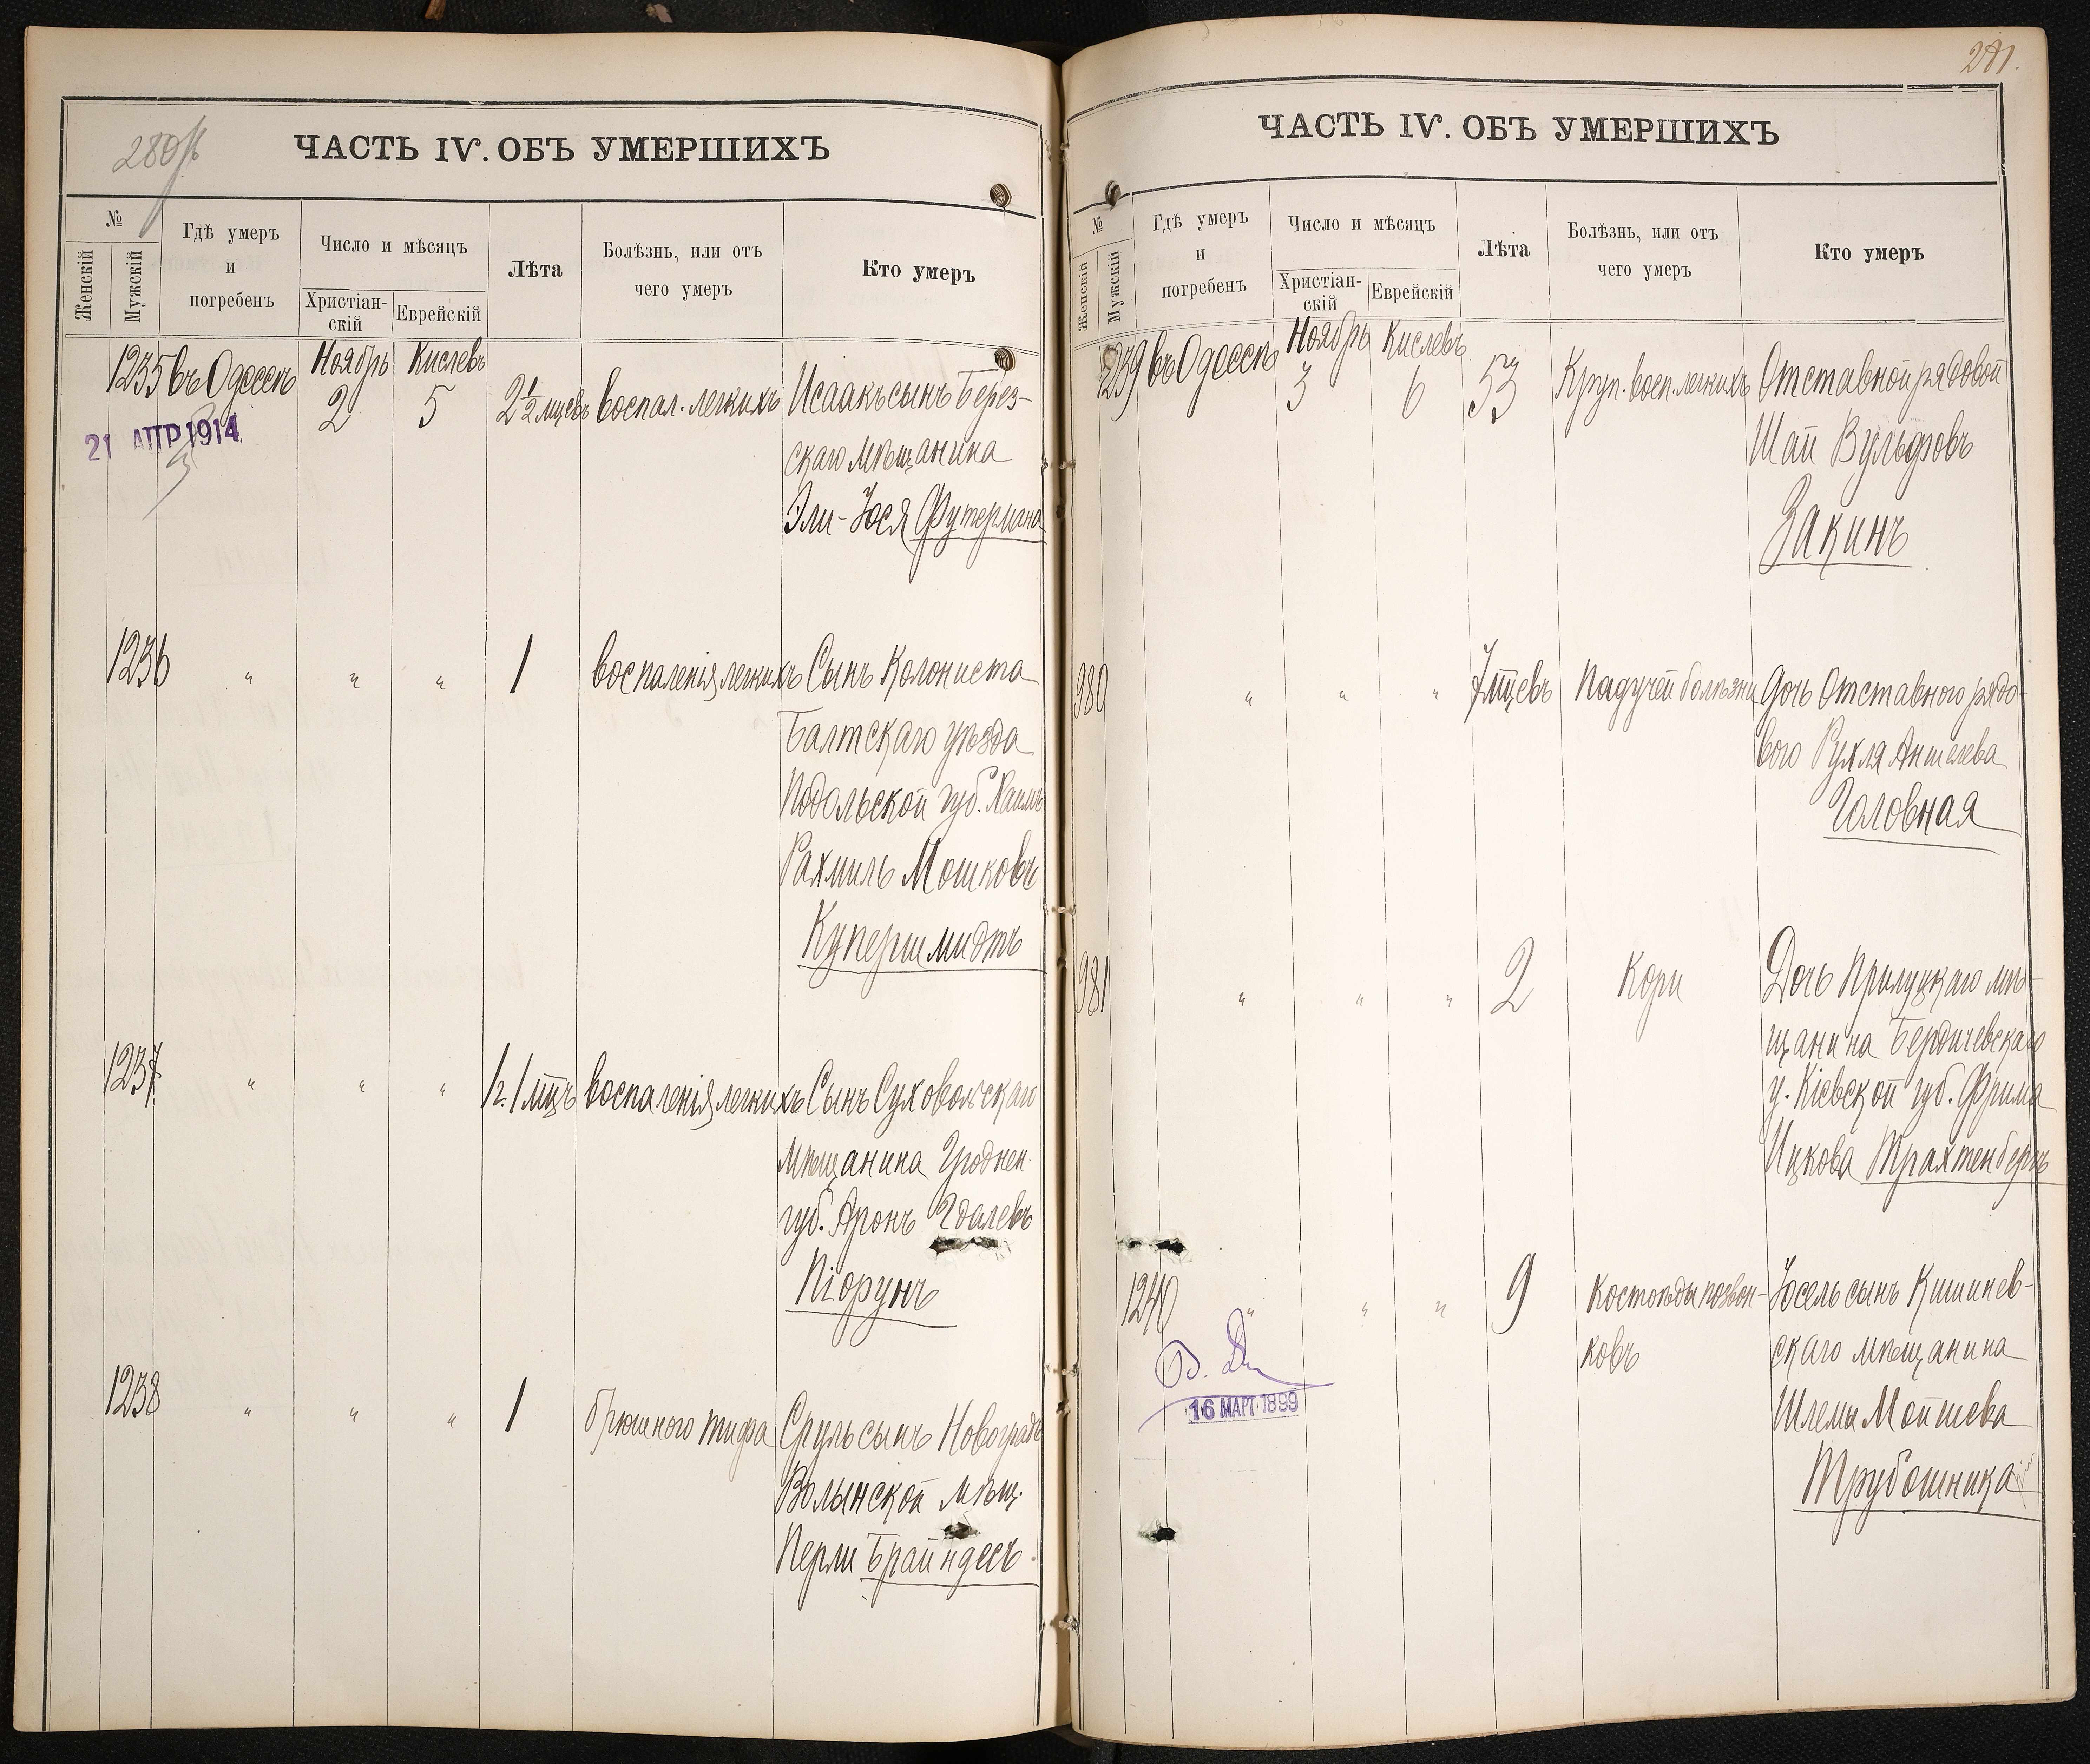 280 об
ЧАСТЬ IV. ОБЪ УМЕРШИХЪ
№
Женскій
Мужскій
Гдѣ умеръ
и
погребенъ
Число и мѣсяцъ
Христіан-
скій
Еврейскій
Лѣта
Болѣзнь, или отъ
чего умеръ
Кто умеръ
1235 въ Одессѣ Ноябрь 2 Кислевъ 5 2 1/2 мцевъ воспал. легкихъ Исаакъ сынъ Берез-
скаго мѣщанина
Эли-Іося Футермана
21 АПР 1914
1236 " " " 1 воспаленія легкихъ Сынъ Колониста
Балтскаго уѣзда
Подольской губ. Хаимъ
Рахмиль Мошковъ
Купершмидтъ
1237 " " " 1 г. 1 мцъ воспаленія легкихъ Сынъ Суховольскаго
мѣщанина Гроднен.
губ. Аронъ Гдалевъ
Піорунъ
1238 " " " 1 брюшного тифа Сруль сынъ Новоградъ
Волынской мѣщ.
Перли Брайндесъ
281.
ЧАСТЬ IV. ОБЪ УМЕРШИХЪ
№
Женскій
Мужскій
Гдѣ умеръ
и
погребенъ
Число и мѣсяцъ
Христіан-
скій
Еврейскій
Лѣта
Болѣзнь, или отъ
чего умеръ
Кто умеръ
1239 въ Одессѣ Ноябрь 3 Кислевъ 6 53 Круп. восп. легкихъ Отставной рядовой
Шай Вульфовъ
Закинъ
980 " " " 7 мцевъ Падучей болѣзни Дочь Отставного рядо-
вого Рухля Аншелева
Головная
981 " " " 2 Кори Дочь Прилуцкаго мѣ-
щанина Бердичевскаго
у. Кіевской губ. Фрима
Ицкова Трахтенбергъ
1240 " " " 9 Костоѣды позвон- Іосель сынъ Кишинев-
ковъ скаго мѣщанина
Шлемы Мойшева
Трубошника
16 МАРТ 1899